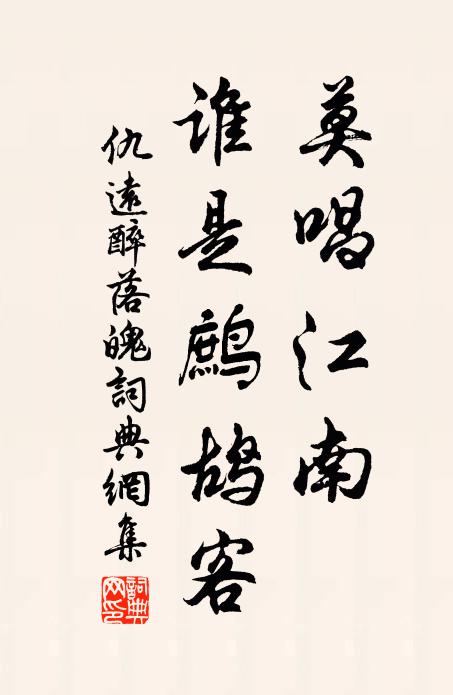 莫唱江南
誰是鷓鴣客
仇遠醉落魄詞典網集
詞典网印